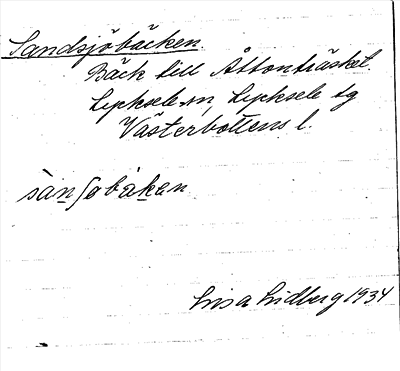 Sandsjöbäcken.
Bäck till Åttonträsket.
Lycksele sn, Lycksele tg
Västerbottens l.
sànʃobàken
Lisa Lidberg 1934